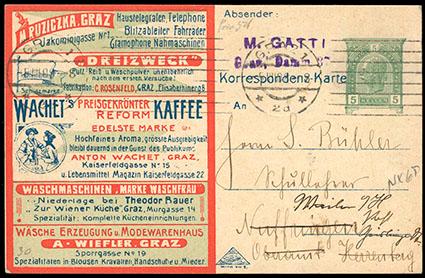 M. RUZICZKA, GRAZ
Jakominigasse No1
Haustelegrafen, Telephone
Blitzableiter Fahrräder
Gramophone Nahmaschinen
„DREIZWECK"
Putz-, Reib- u. Waschpulver, unentbehrlich
nach dem ersten Versuche.
Schutzmarke
Fabrikation: C. ROSENFELD, GRAZ, Elisabethinerg. 8
WACHET'S PREISGEKRÖNTER
REFORM KAFFEE
EDELSTE MARKE
Hochfeines Aroma, grösste Ausgiebigkeit
bleibt dauernd in der Gunst des Publikums.
ANTON WACHET, GRAZ,
Kaiserfeldgasse No 15
u. Lebensmittel Magazin Kaiserfeldgasse 22
WASCHMASCHINEN, MARKE WASCHFRAU
Niederlage bei Theodor Rauer
„Zur Wiener Küche", Graz, Murgasse 14
Spezialität: Komplette Kücheneinrichtungen.
WÄSCHE ERZEUGUNG u. MODEWARENHAUS
A. WIEFLER, GRAZ
Sporgasse No 19
Spezialitäten in Blousen, Kravatten, Handschuhe u. Mieder.
30
Absender:
M. GATTI
Graz,
5
5 5
Korrespondenz-Karte
2d
An
Herrn S. Bühler
Schullehrer
Weiler
Nuffringen
Oberamt Herrenberg